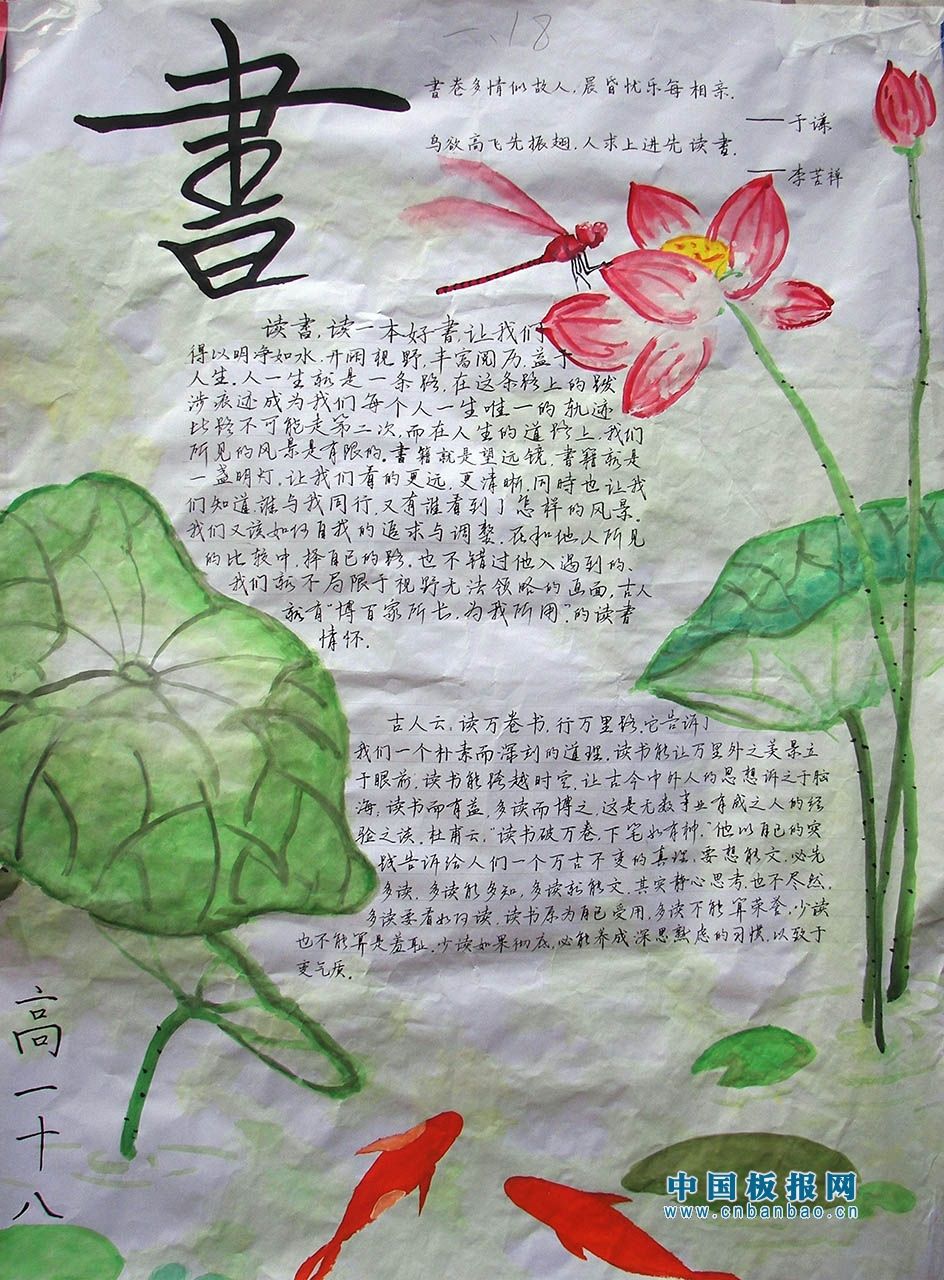 一、18
書
書卷多情似故人，晨昏忧乐每相亲．
——于谦
鸟欲高飞先振翅，人求上进先读書．
——李苦禅
读書，读一本好書，让我们
得以明净如水，开阔视野，丰富阅历，益于
人生．人一生就是一条路，在这条路上的跋
涉痕迹成为我们每个人一生唯一的轨迹
此路不可能走第二次，而在人生的道路上，我们
所见的风景是有限的．書籍就是望远镜，書籍就是
一盏明灯，让我们看的更远，更清晰，同時也让我
们知道谁与我同行，又有谁看到了怎样的风景．
我们又该如何自我的追求与调整．在和他人所见
的比较中，择自己的路．也不错过他人遇到的、
我们就不局限于视野无法领略的画面，古人
就有“博百家所长，为我所用．”的读書
情怀．
古人云：读万卷书，行万里路．它告诉了
我们一个朴素而深刻的道理．读书能让万里外之美景立
于眼前，读书能跨越时空，让古今中外人的思想诉之于脑
海，读书而有益，多读而博之，这是无数事业有成之人的经
验之谈，杜甫云：“读书破万卷，下笔如有神．”他以自己的实
践告诉给人们一个万古不变的真理，要想能文，必先
多读，多读能多知，多读就能文，其实静心思考，也不尽然．
多读要看如何读，读书原为自己受用，多读不能算荣誉，少读
也不能算是羞耻，少读如果彻底，必能养成深思熟虑的习惯，以致于
变气质．
高一十八
中国板报网
www.cnbanbao.cn